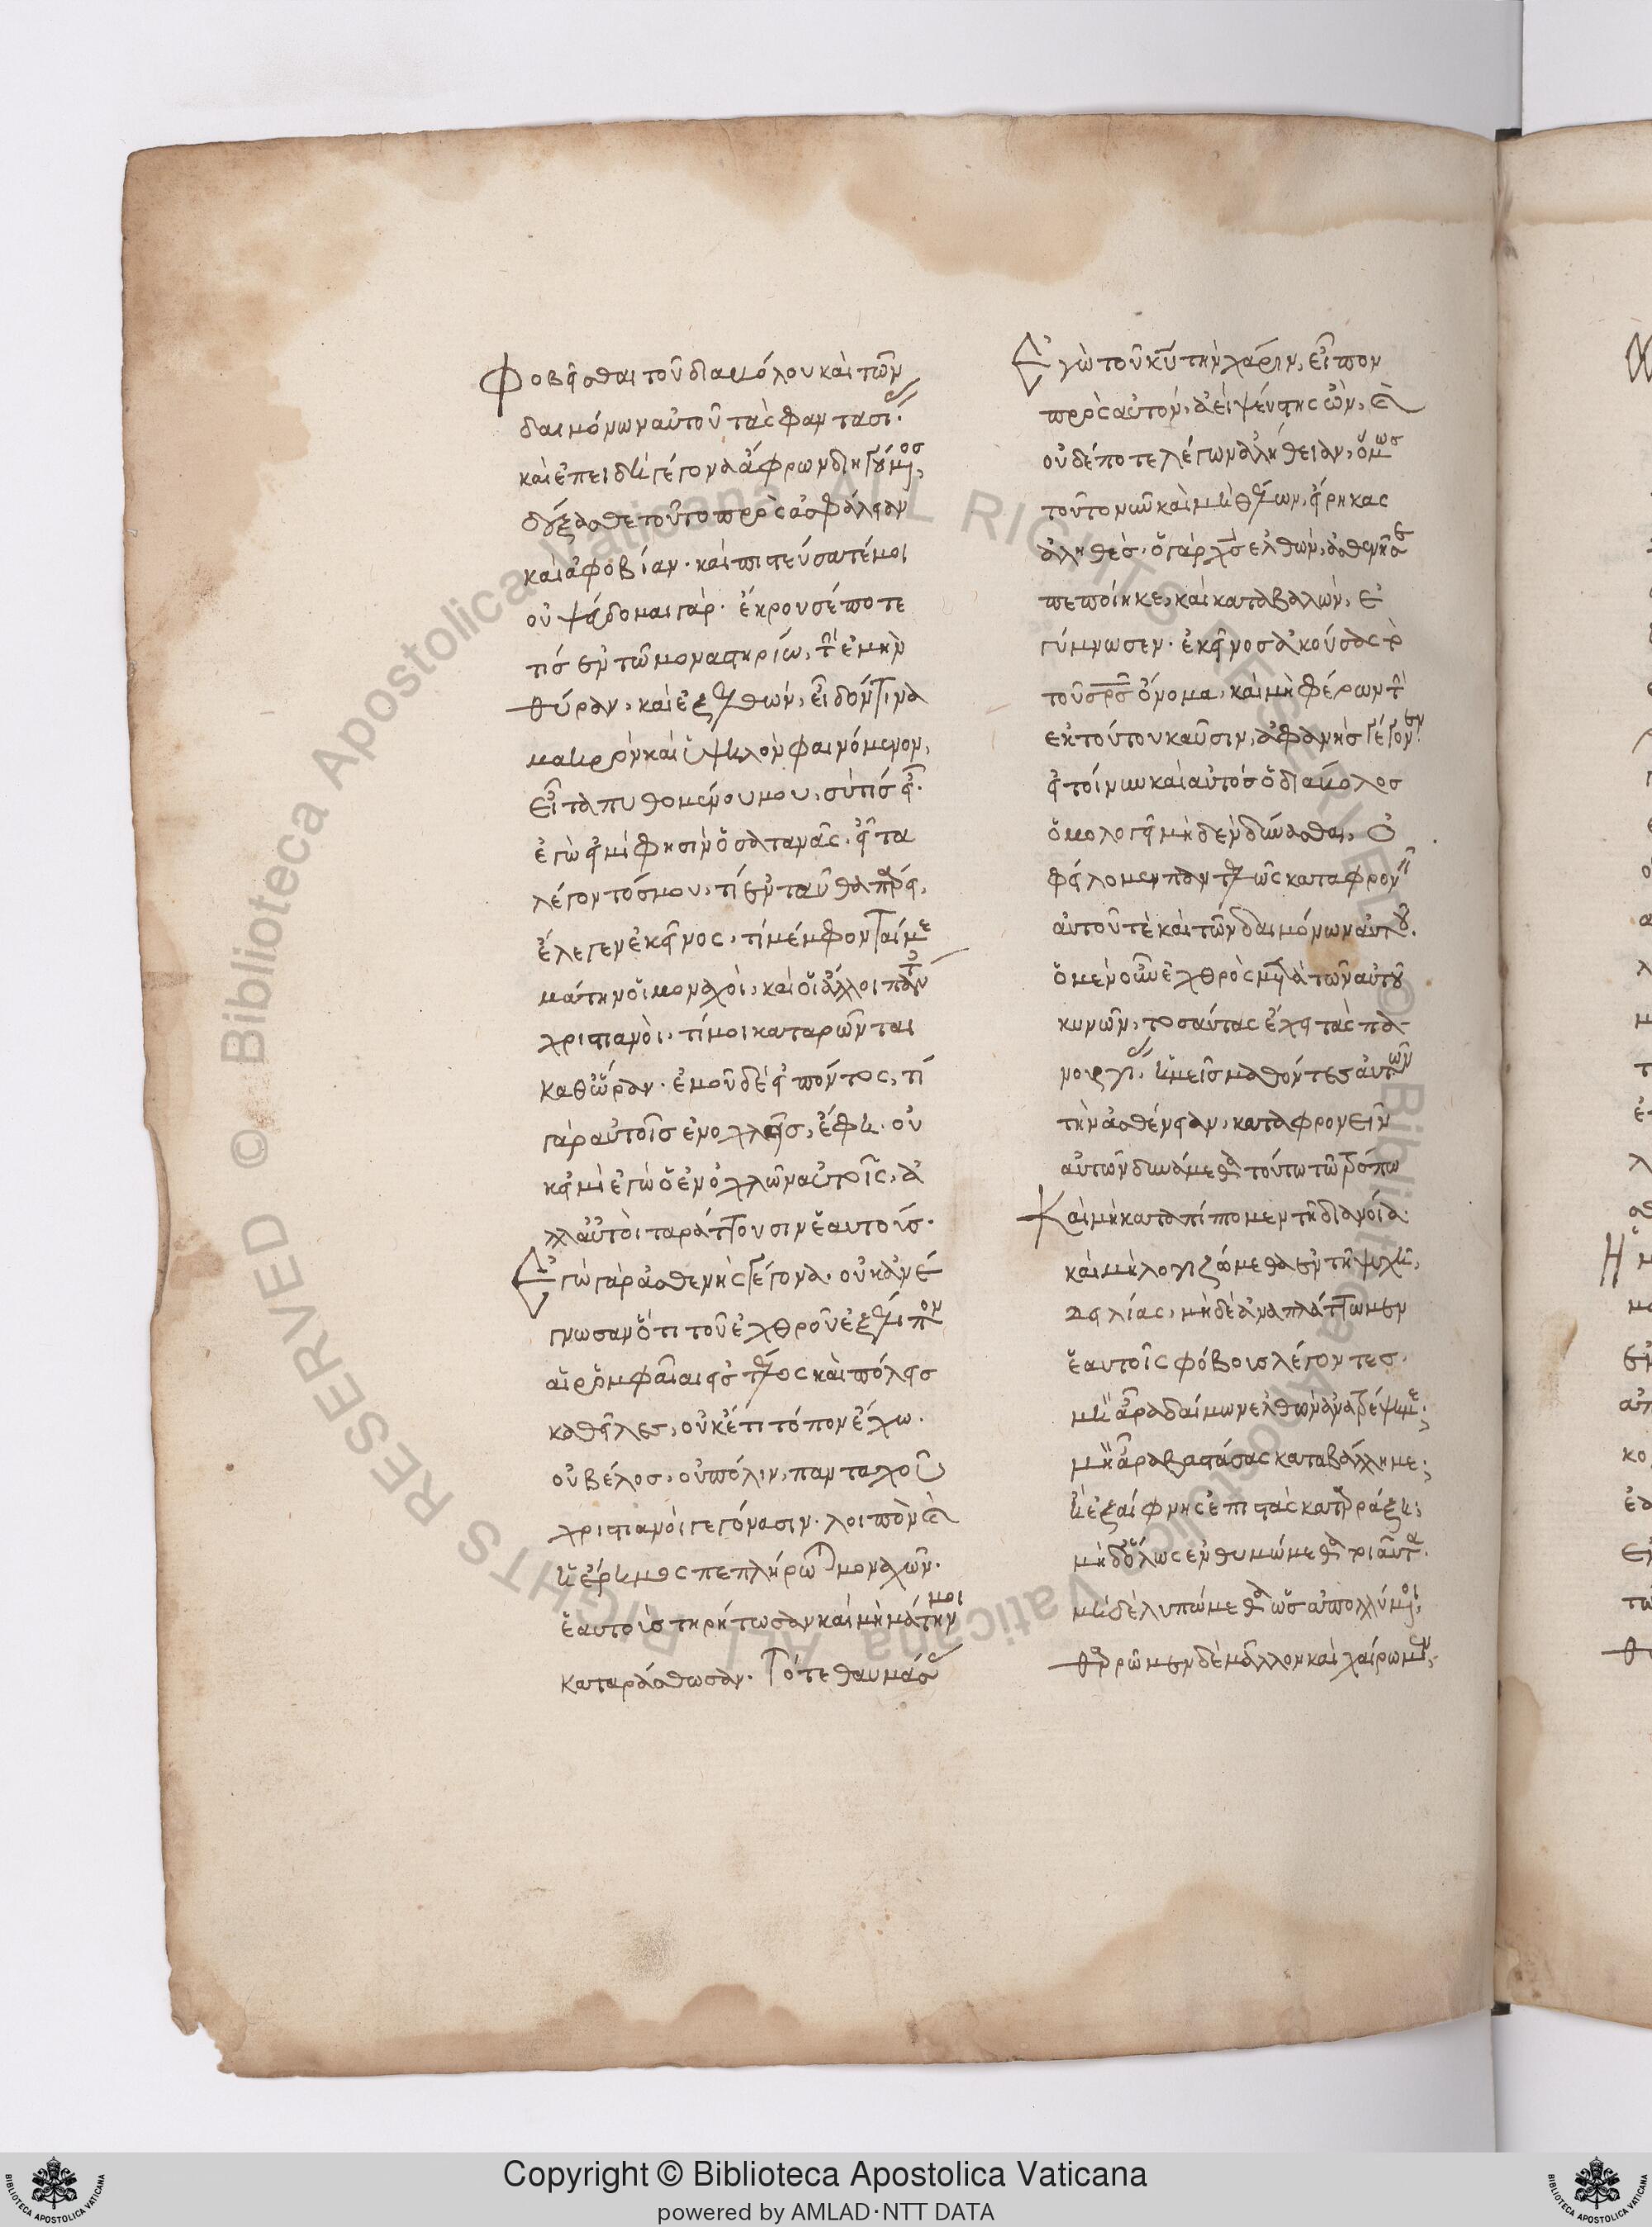 Φοβεῖσθαι τοῦ διαβόλου καὶ τῶν
δαιμόνων αὐτοῦ τὰς φαντασί
καὶ ἐπειδὴ γέγονα ἄφρων διηγούμ(εν)ος,
δέξασθε τοῦτο πρὸς ἀσφάλειαν
καὶ ἀφοβίαν· καὶ πιστεύσατέ μοι
οὐ ψεύδομαι γάρ· ἔκρουσέ ποτε
τίς ἐν τῶ μοναστηρίω, τ(ὴν) ἐμὴν
θύραν, καὶ ἐξελθών, εἶδόν τινα
μακρὸν καὶ ὑψηλὸν φαινόμενον,
εἶτα πυθομένου μου, σὺ τίς εἶ·
ἐγὼ εἰμί φησὶν ὁ σατανᾶς· εἶτα
λέγοντός μου, τί ἐνταῦθα πάρει,
ἔλεγεν ἐκεῖνος, τί μέμφονταί με
μάτην οἱ μοναχοὶ, καὶ οἱ ἄλλοι πάντ
χριστιανοὶ, τί μοι καταρῶνται
καθ ὥραν· ἐμοῦ δὲ εἰπόντος, τί
γὰρ αὐτοῖς ἐνοχλεῖς, ἔφη· οὐ
κ εἰμὶ ἐγὼ ὁ ἐνοχλῶν αὐτοῖς, ἀ
λλ αὐτοὶ ταράττουσιν ἑαυτούς·
Ἐγὼ γὰρ ἀσθενὴς γέγονα· οὐκ ἀνέ
γνωσαν ὅτι τοῦ ἐχθροῦ ἐξέλιπον
αἱ ῥομφαῖαι εἰς τέλος καὶ πόλεις
καθεῖλες, οὐκέτι τόπον ἔχω·
οὐ βέλος, οὐ πόλιν, πανταχοῦ
χριστιανοὶ γεγόνασιν· λοιπὸν (καὶ)
ἡ ἔρημος πεπλήρωται μοναχῶν·
ἑαυτοὺς τηρήτωσαν καὶ μὴ μάτην μοι
καταράσθωσαν· Τότε θαυμάσας
Ἐγὼ τοῦ κυ τὴν χάριν, εἶπον
πρὸς αὐτόν, ἀεὶ ψεύστης ὤν, (καὶ)
οὐδέποτε λέγων ἀλήθειαν, ὅμως
τοῦτο νῦν καὶ μὴ θέλων, εἴρηκας
ἀληθές· ὁ γὰρ χς ἐλθών, ἀσθενῆ σε
πεποίηκε, καὶ καταβαλών, ἐ
γύμνωσεν· ἐκεῖνος ἀκούσας τὸ
τοῦ σρς ὄνομα, καὶ μὴ φέρων τ(ὴν)
ἐκ τούτου καῦσιν, ἀφανὴς γέγονεν
εἰ τοίνυν καὶ αὐτὸς ὁ διάβολος
ὁμολογεῖ μηδὲν δύνασθαι, ὀ
φείλομεν παντελῶς καταφρον
αὐτοῦ τὲ καὶ τῶν δαιμόνων αὐτοῦ.
ὁ μὲν οὖν ἐχθρὸς μετὰ τῶν αὐτοῦ
κυνῶν, τοσαύτας ἔχει τὰς πα
νουργί, ἡμεῖς μαθόντες αὐτῶν
τὴν ἀσθένειαν, καταφρονεῖν
αὐτῶν δυνάμεθα τούτω τῶ τρόπω
Καὶ μὴ καταπίπτομεν τῆ διανοία·
καὶ μὴ λογιζώμεθα ἐν τῆ ψυχῆ,
δειλίας, μὴ δὲ ἀναπλάττωμεν
ἑαυτοῖς φόβους λέγοντες·
μὴ ἄρα δαίμων ἐλθὼν ἀνατρέψη με·
μὴ ἄρα βαστάσας καταβάλλη με·
ἢ ἐξαίφνης ἐπιστὰς καταράξη,
μὴ δ ὅλως ἐνθυμώμεθα τοιαῦτα·
μὴ δὲ λυπώμεθα ὡς ἀπολλύμ(εν)οι,
θαρρῶμεν δὲ μᾶλλον καὶ χαίρωμεν,
Copyright © Biblioteca Apostolica Vaticana
powered by AMLAD·NTT DATA